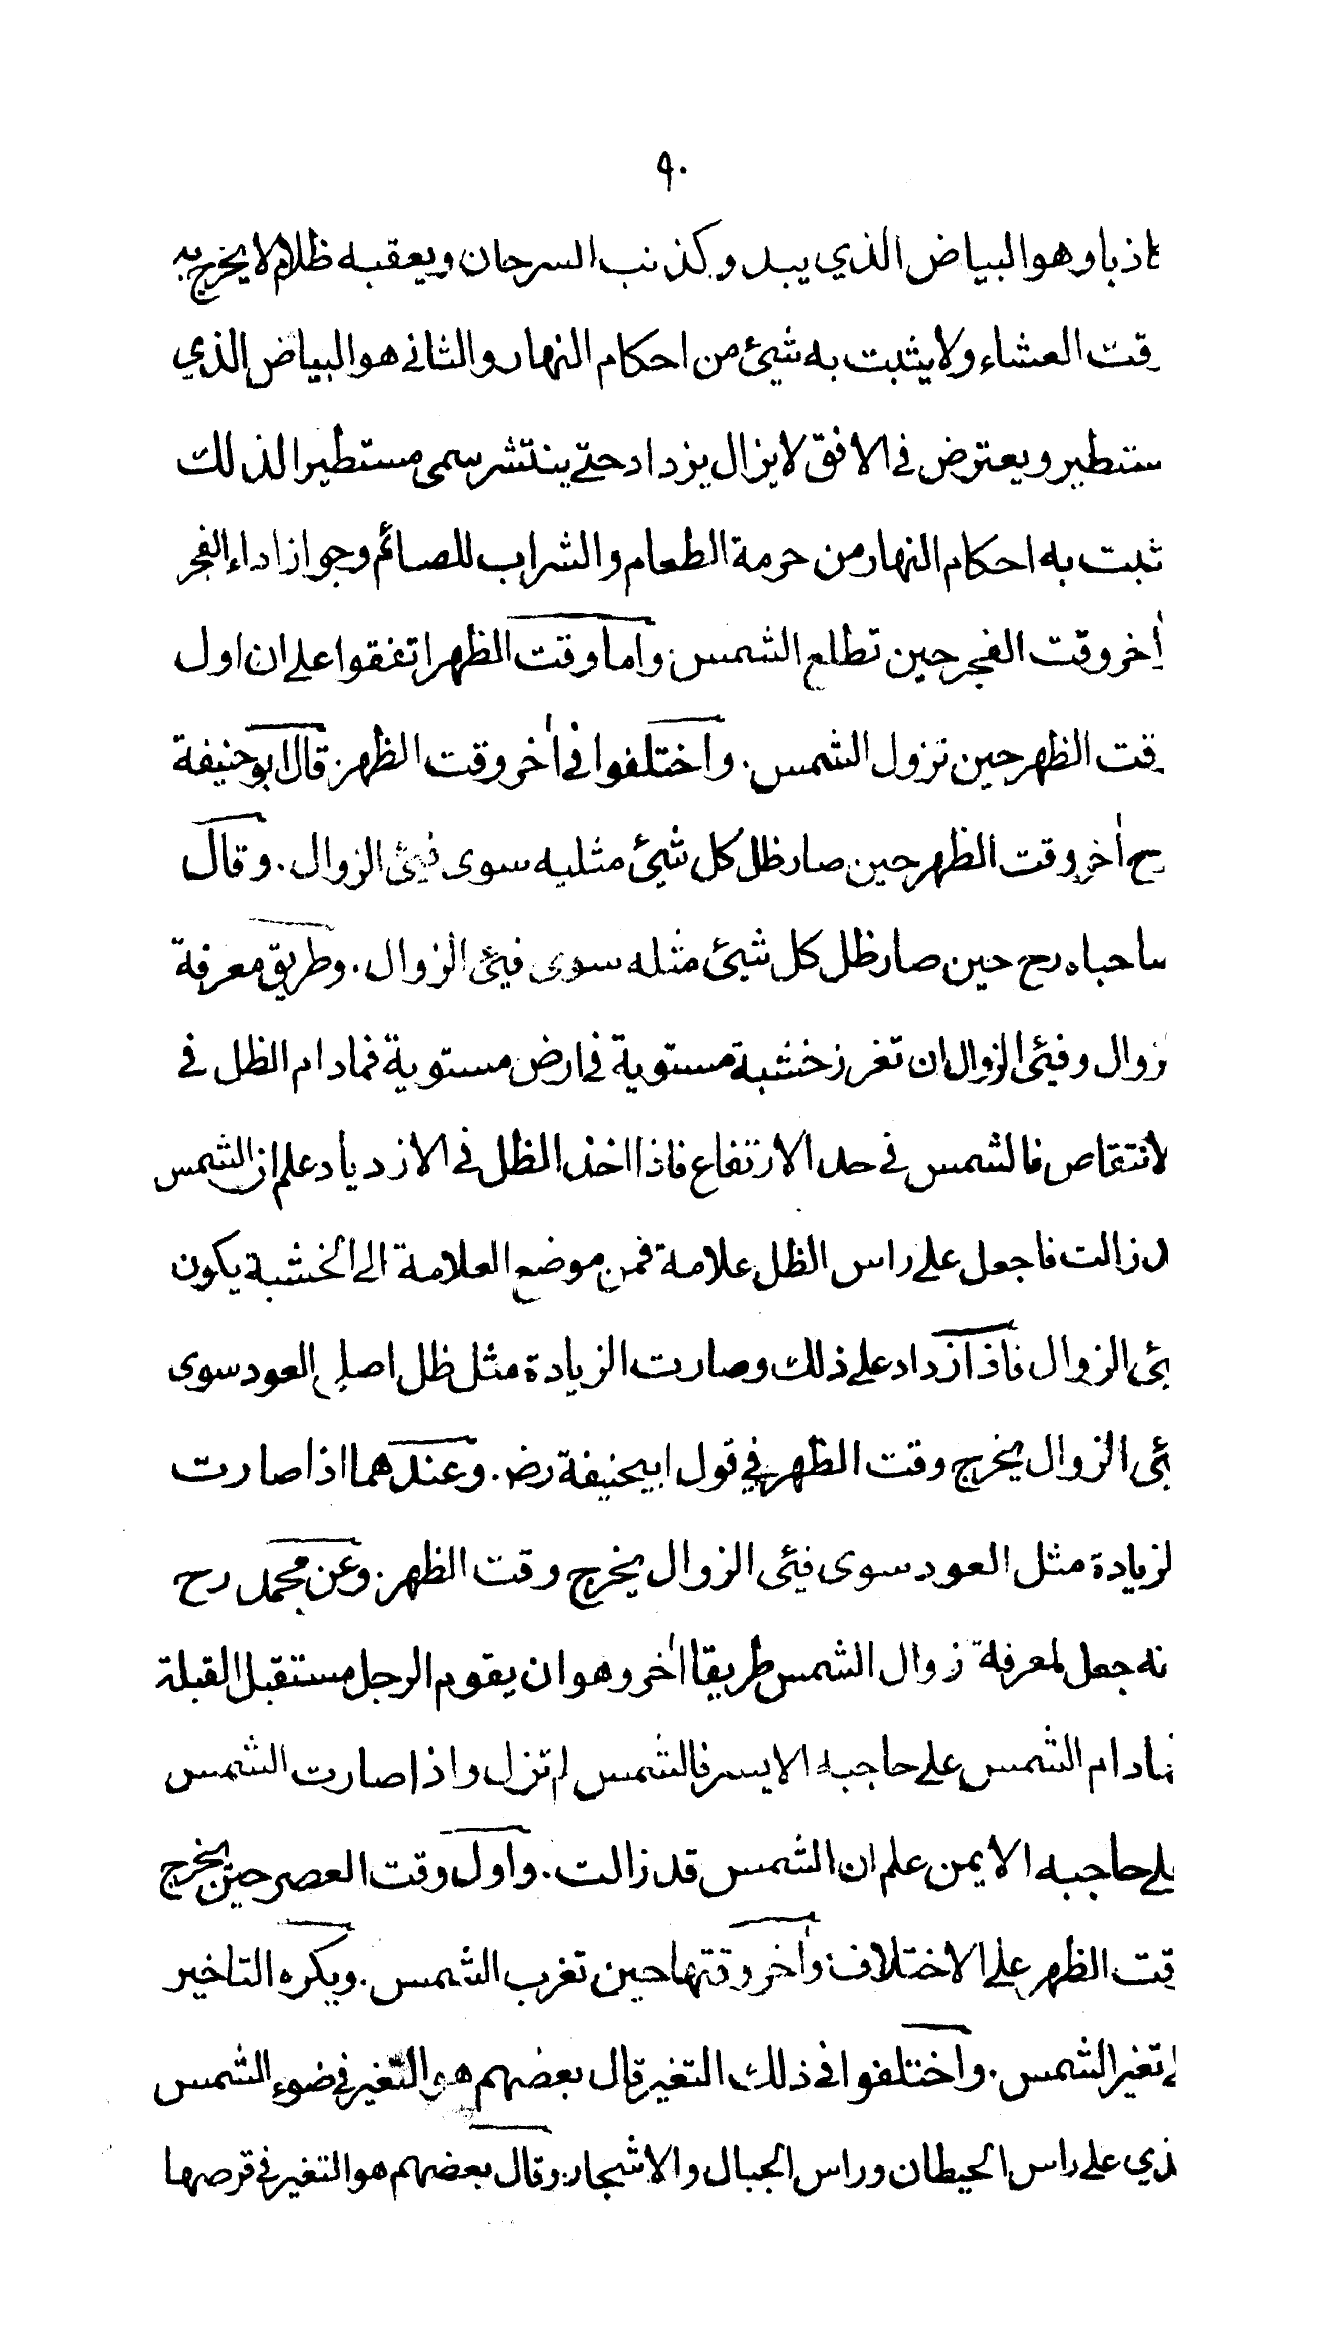 ٩٠
اذبا وهو البياض الذي يبد و كذنب السرحان ويعقبه ظلام لا يخرج به
قت العشاء ولا يثبت به شيئ من احكام النهار والثاني هو البياض الذي
ستطير ويعترض في الافق لا يزال يزداد حتى ينتشر سمى مستطيرا لذلك
ثبت به احكام النهار من حرمة الطعام والشراب للصائم وجواز اداء الفجر
اٰخر وقت الفجر حين تطلع الشمس. واما وقت الظهر اتفقوا على ان اول
قت الظهر حين تزول الشمس. واختلفوا في اٰخر وقت الظهر. قال ابو حنيفة
رح اٰخر وقت الظهر حين صار ظل كل شيئ مثليه سوى فيئ الزوال. وقال
ساحباه رح حين صار ظل كل شيئ مثله سوى فيئ الزوال. وطريق معرفة
زوال وفيئ الزوال ان تغرز خشبة مستوية في ارض مستوية فمادام الظل في
لانتقاص فالشمس في حد الارتفاع فاذا اخذ الظل في الازدياد علم ان الشمس
د زالت فاجعل على راس الظل علامة فمن موضع العلامة الى الخشبة يكون
يئ الزوال فاذا ازداد على ذلك وصارت الزيادة مثل ظل اصل العود سوى
يئ الزوال يخرج وقت الظهر في قول ابيحنيفة رض. وعندهما اذا صارت
لزيادة مثل العود سوى فيئ الزوال يخرج وقت الظهر. وعن محمد رح
نه جعل لمعرفة زوال الشمس طريقا اٰخر وهو ان يقوم الرجل مستقبل القبلة
مادام الشمس على حاجبه الايسر فالشمس لم تزل واذا صارت الشمس
لى حاجبه الايمن علم ان الشمس قد زالت. واول وقت العصر حين يخرج
قت الظهر على الاختلاف واٰخر وقتها حين تغرب الشمس. ويكره التاخير
لى تغير الشمس. واختلفوا في ذلك التغير قال بعضهم هو التغير في ضوء الشمس
لذي على راس الحيطان وراس الجبال والاشجار. وقال بعضهم هو التغير في قرصها